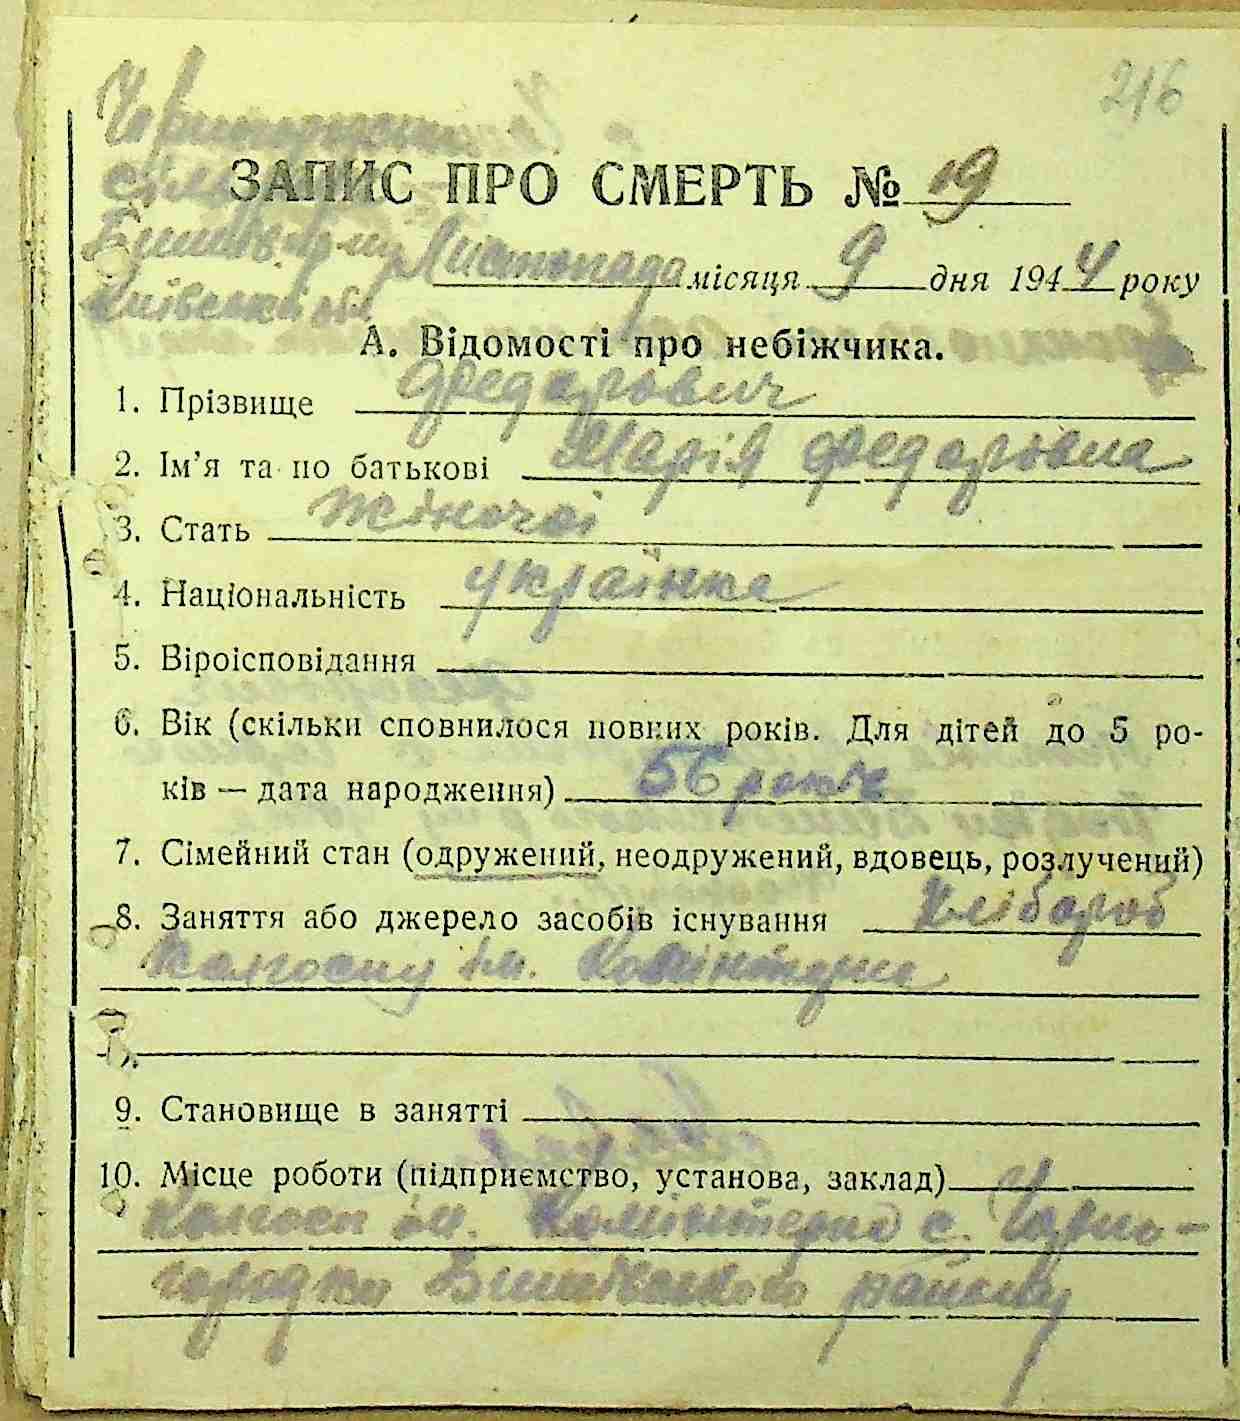 216
Чорногородська
сільрада
Бишівс. р-ну
Київської обл
ЗАПИС ПРО СМЕРТЬ № 19
Листопада місяця 9 дня 1944 року
А. Відомості про небіжчика.
1. Прізвище Федарович
2. Ім’я та по батькові Марія Федаровна
3. Стать жіночоі
4. Національність українка
5. Віроісповідання
6. Вік (скільки сповнилося повних років. Для дітей до 5 ро-
ків — дата народження) 56 років
7. Сімейний стан (одружений, неодружений, вдовець, розлучений)
8. Заняття або джерело засобів існування хлібароб
Калгоспу ім. Комінтерна
9. Становище в занятті
10. Місце роботи (підприємство, установа, заклад)
Калгосп ім. Комінтерна с. Чорно-
городки Бишівського району